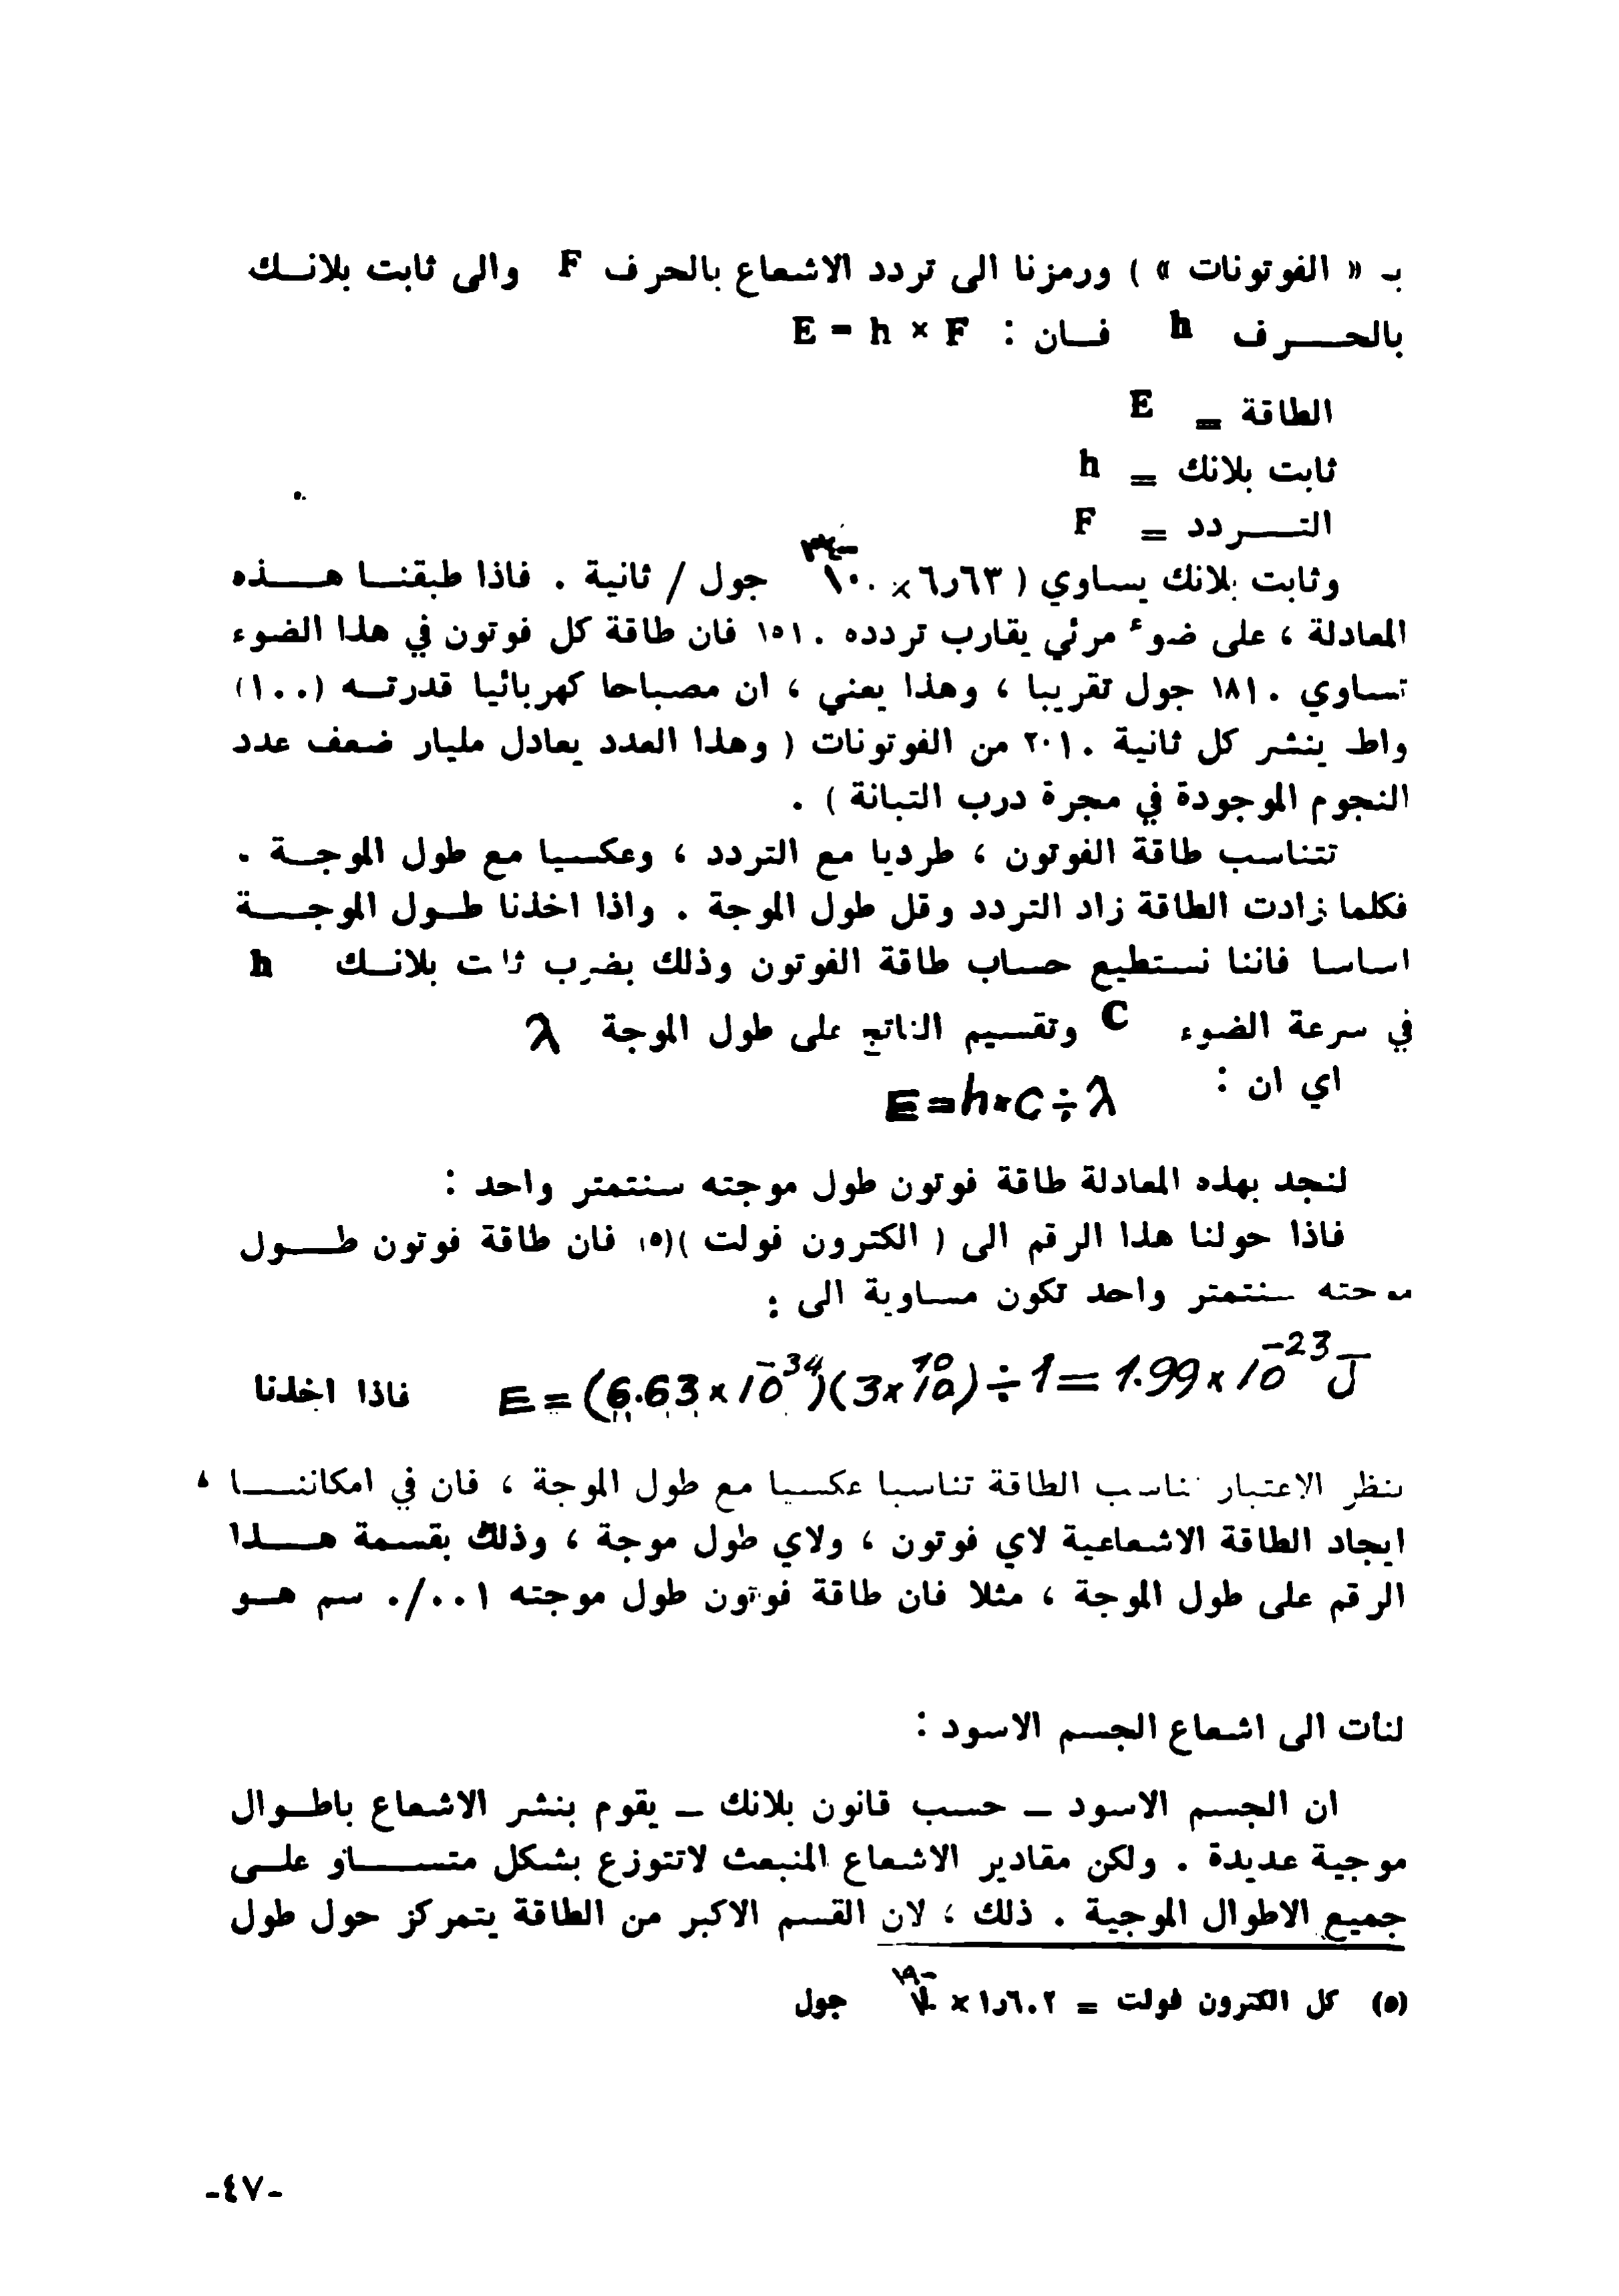 بـ « الفوتونات » ) ورمزنا الى تردد الاشعاع بالحرف F والى ثابت بلانــك
بالحـــــرف h فــان : E = h × F
الطاقة = E
ثابت بلانك = h
التـــــردد = F
وثابت بلانك يساوي ( ٦٫٦٣ × ١٠ -٣٤ جول / ثانية . فاذا طبقنــا هــــذه
المعادلة ، على ضوء مرئي يقارب تردده ١٥١٠ فان طاقة كل فوتون في هذا الضوء
تساوي ١٨١٠ جول تقريبا ، وهذا يعني ، ان مصباحا كهربائيا قدرتــه (١٠٠)
واط ينشر كل ثانية ٢٠١٠ من الفوتونات ( وهذا العدد يعادل مليار ضعف عدد
النجوم الموجودة في مجرة درب التبانة ) .
تتناسب طاقة الفوتون ، طرديا مع التردد ، وعكسيا مع طول الموجــة .
فكلما زادت الطاقة زاد التردد وقل طول الموجة . واذا اخذنا طــول الموجــــة
اساسا فاننا نستطيع حساب طاقة الفوتون وذلك بضرب ثابت بلانــك h
في سرعة الضوء C وتقسيم الناتج على طول الموجة λ
اي ان : E = h × C ÷ λ
لنجد بهذه المعادلة طاقة فوتون طول موجته سنتمتر واحد :
فاذا حولنا هذا الرقم الى ( الكترون فولت )(٥) فان طاقة فوتون طــــول
موجته سنتمتر واحد تكون مساوية الى :
E = (6.63 × 10 -34)(3 × 10 10) ÷ 1 = 1.99 × 10 -23 J فاذا اخذنا
بنظر الاعتبار تناسب الطاقة تناسبا عكسيا مع طول الموجة ، فان في امكاننــــا ،
ايجاد الطاقة الاشعاعية لاي فوتون ، ولاي طول موجة ، وذلك بقسمة هــــذا
الرقم على طول الموجة ، مثلا فان طاقة فوتون طول موجته ٠/٠٠١ سم هــو
لنأت الى اشعاع الجسم الاسود :
ان الجسم الاسود – حسب قانون بلانك – يقوم بنشر الاشعاع باطــوال
موجية عديدة . ولكن مقادير الاشعاع المنبعث لاتتوزع بشكل متســــاو علــى
جميع الاطوال الموجية . ذلك ، لان القسم الاكبر من الطاقة يتمركز حول طول
(٥) كل الكترون فولت = ١٫٦٠٢ × ١٠ -١٩ جول
-٤٧-